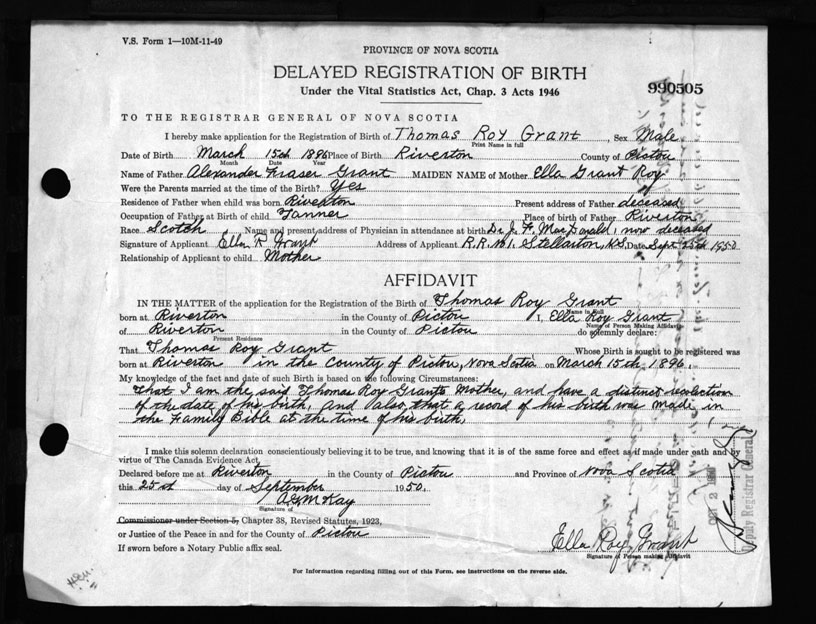 V.S. Form 1—10M-11-49
PROVINCE OF NOVA SCOTIA
DELAYED REGISTRATION OF BIRTH
Under the Vital Statistics Act, Chap. 3 Acts 1946
990505
TO THE REGISTRAR GENERAL OF NOVA SCOTIA
I hereby make application for the Registration of Birth of Thomas Roy Grant, Sex Male
Print Name in full
Date of Birth March 15th 1896 Place of Birth Riverton County of Pictou
Month Date Year
Name of Father Alexander Fraser Grant MAIDEN NAME of Mother Ella Grant Roy
Were the Parents married at the time of the Birth? Yes
Residence of Father when child was born Riverton Present address of Father deceased
Occupation of Father at Birth of child Tanner Place of birth of Father Riverton
Race Scotch Name and present address of Physician in attendance at birth Dr. J. F. MacDonald, now deceased
Signature of Applicant Ella R Grant Address of Applicant R.R. No 1. Stellarton, N.S. Date Sept 25th 1950
Relationship of Applicant to child Mother
AFFIDAVIT
IN THE MATTER of the application for the Registration of the Birth of Thomas Roy Grant
Name in Full
born at Riverton in the County of Pictou I, Ella Roy Grant
Name of Person Making Affidavit
of Riverton in the County of Pictou do solemnly declare:
Present Residence
That Thomas Roy Grant Whose Birth is sought to be registered was
born at Riverton in the County of Pictou, Nova Scotia on March 15th 1896.
My knowledge of the fact and date of such Birth is based on the following Circumstances:
That I am the said Thomas Roy Grant's Mother, and have a distinct recolection
of the date of his birth, and also, that a record of his birth was made in
the Family Bible at the time of his birth.
I make this solemn declaration conscientiously believing it to be true, and knowing that it is of the same force and effect as if made under oath and by
virtue of The Canada Evidence Act.
Declared before me at Riverton in the County of Pictou and Province of Nova Scotia
this 25st day of September 1950.
McKay
Signature of
Commissioner under Section 5, Chapter 38, Revised Statutes, 1923,
or Justice of the Peace in and for the County of Pictou
If sworn before a Notary Public affix seal.
Ella Roy Grant
Signature of Person making Affidavit
For Information regarding filling out of this Form, see instructions on the reverse side.
Deputy Registrar General